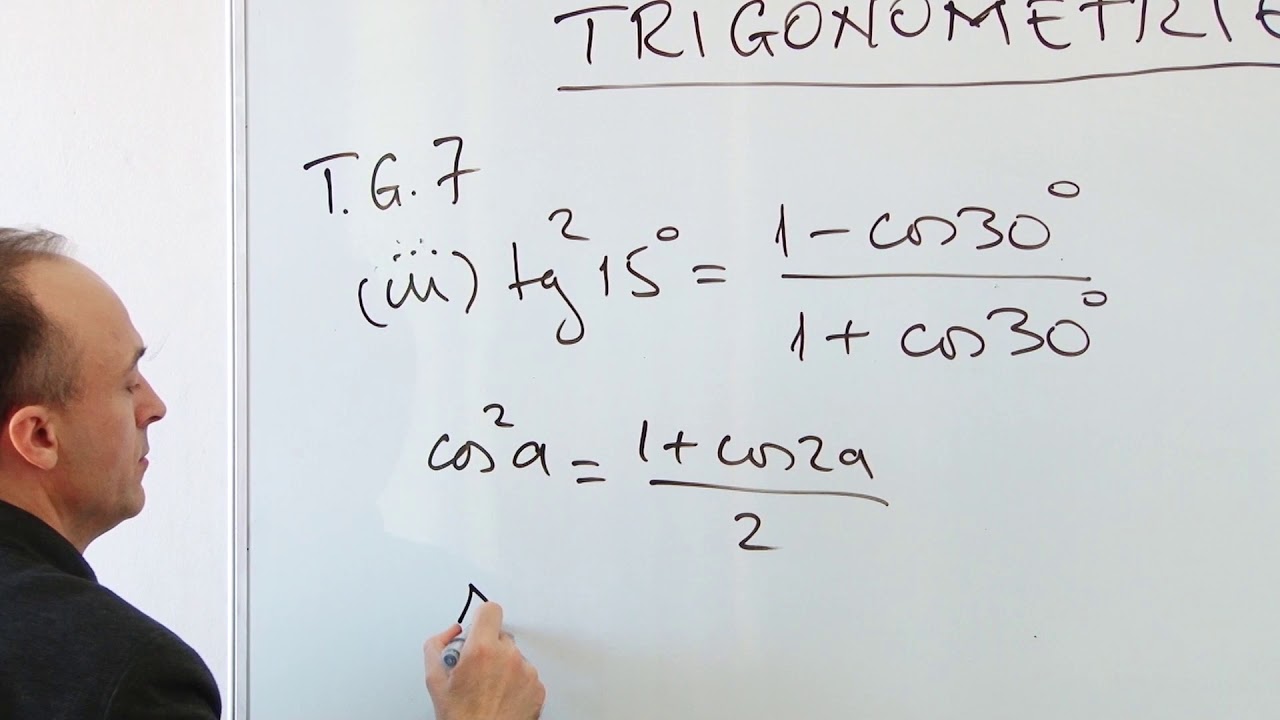 TRIGONOMETRIE
T.G.7
(iii) tg² 15° = (1 - cos30°) / (1 + cos30°)
cos²a = (1 + cos2a) / 2